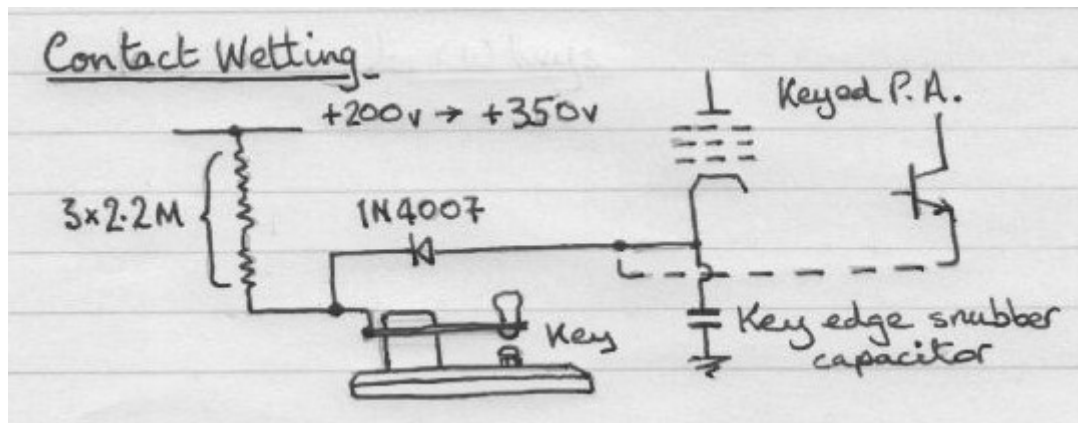 Contact Wetting
+200v → +350v
Keyed P.A.
3x2.2M
1N4007
Key
Key edge snubber
capacitor